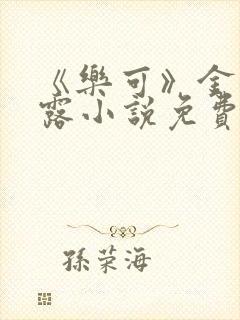 《樂可》金
露小說免費
孫荣海